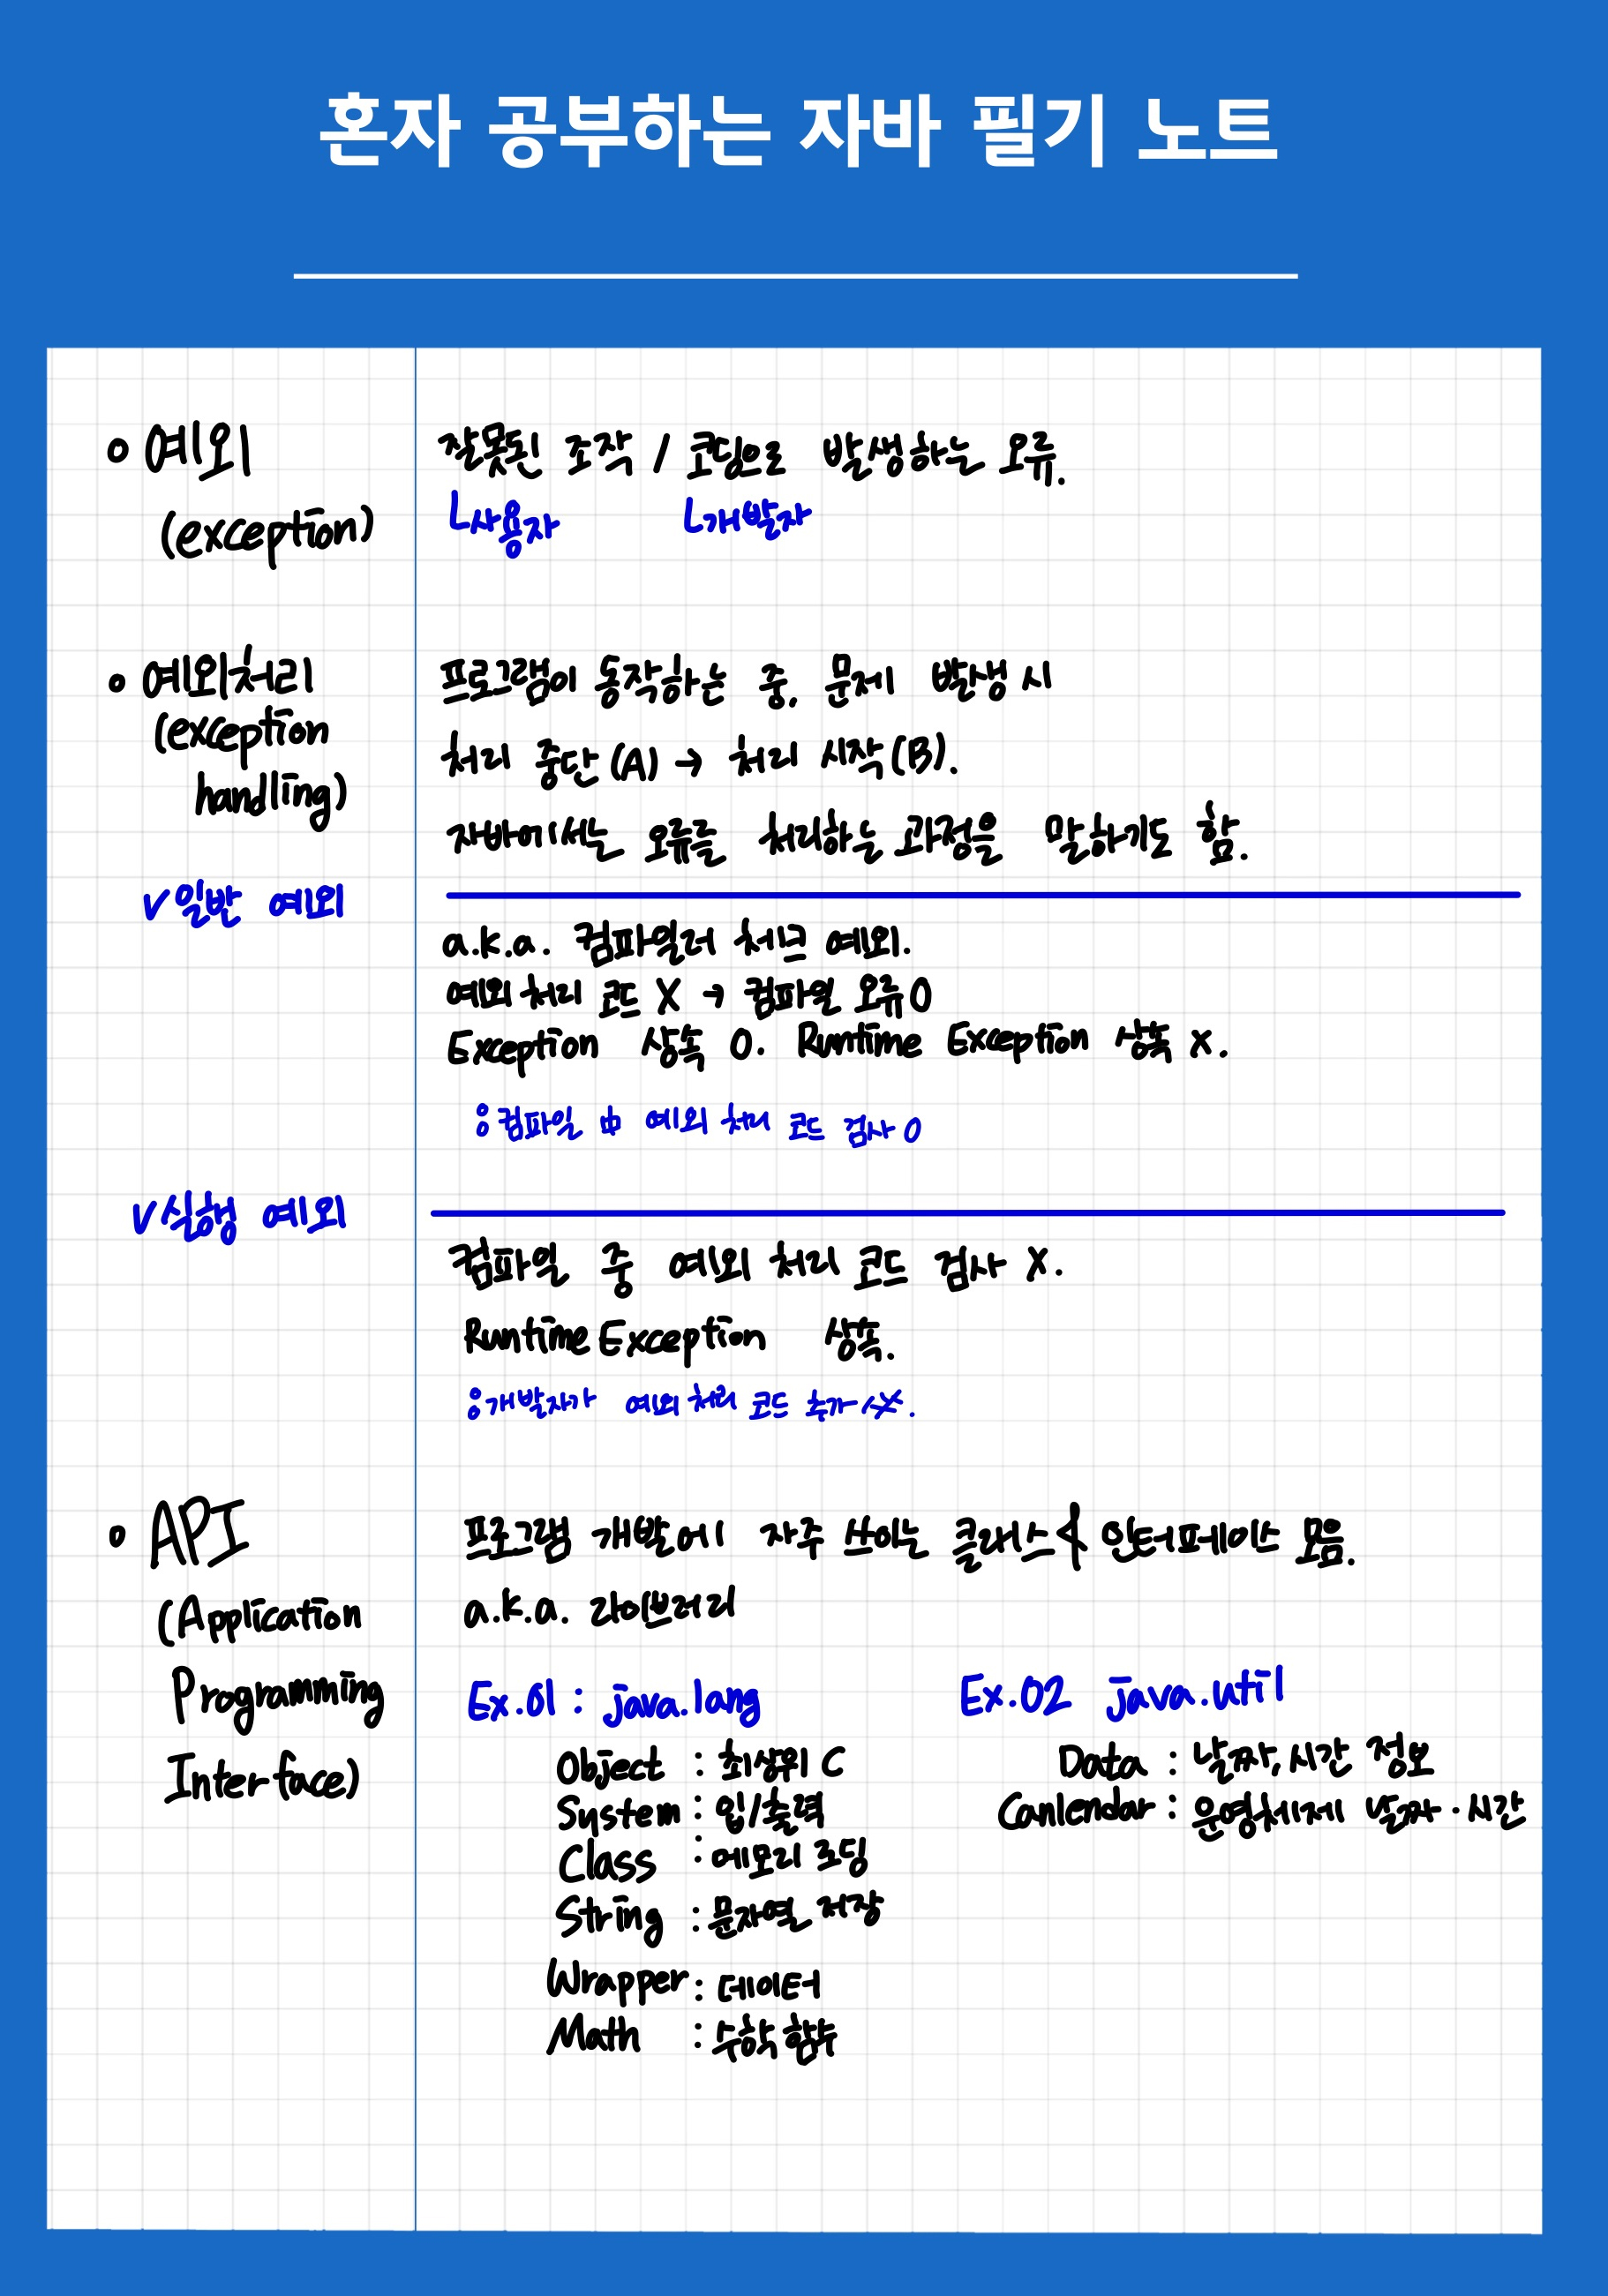 혼자 공부하는 자바 필기 노트
◦ 예외
(exception)
잘못된 조작 / 코딩으로 발생하는 오류.
ㄴ사용자 ㄴ개발자
◦ 예외처리
(exception
handling)
프로그램이 동작하는 중, 문제 발생 시
처리 중단(A) → 처리 시작(B).
자바에서는 오류를 처리하는 과정을 말하기도 함.
v 일반 예외
a.k.a. 컴파일러 체크 예외.
예외 처리 코드 X → 컴파일 오류 O
Exception 상속 O. Runtime Exception 상속 x.
컴파일 中 예외 처리 코드 검사 O
v 실행 예외
컴파일 중 예외 처리 코드 검사 X.
RuntimeException 상속.
개발자가 예외 처리 코드 추가
◦ API
(Application
Programming
Interface)
프로그램 개발에 자주 쓰이는 클래스 & 인터페이스 모음.
a.k.a. 라이브러리
Ex.01 : java.lang
Object : 최상위 C
System : 입/출력
Class : 메모리 로딩
String : 문자열 저장
Wrapper : 데이터
Math : 수학 함수
Ex.02 java.util
Data : 날짜, 시간 정보
Canlendar : 운영체제 날짜·시간